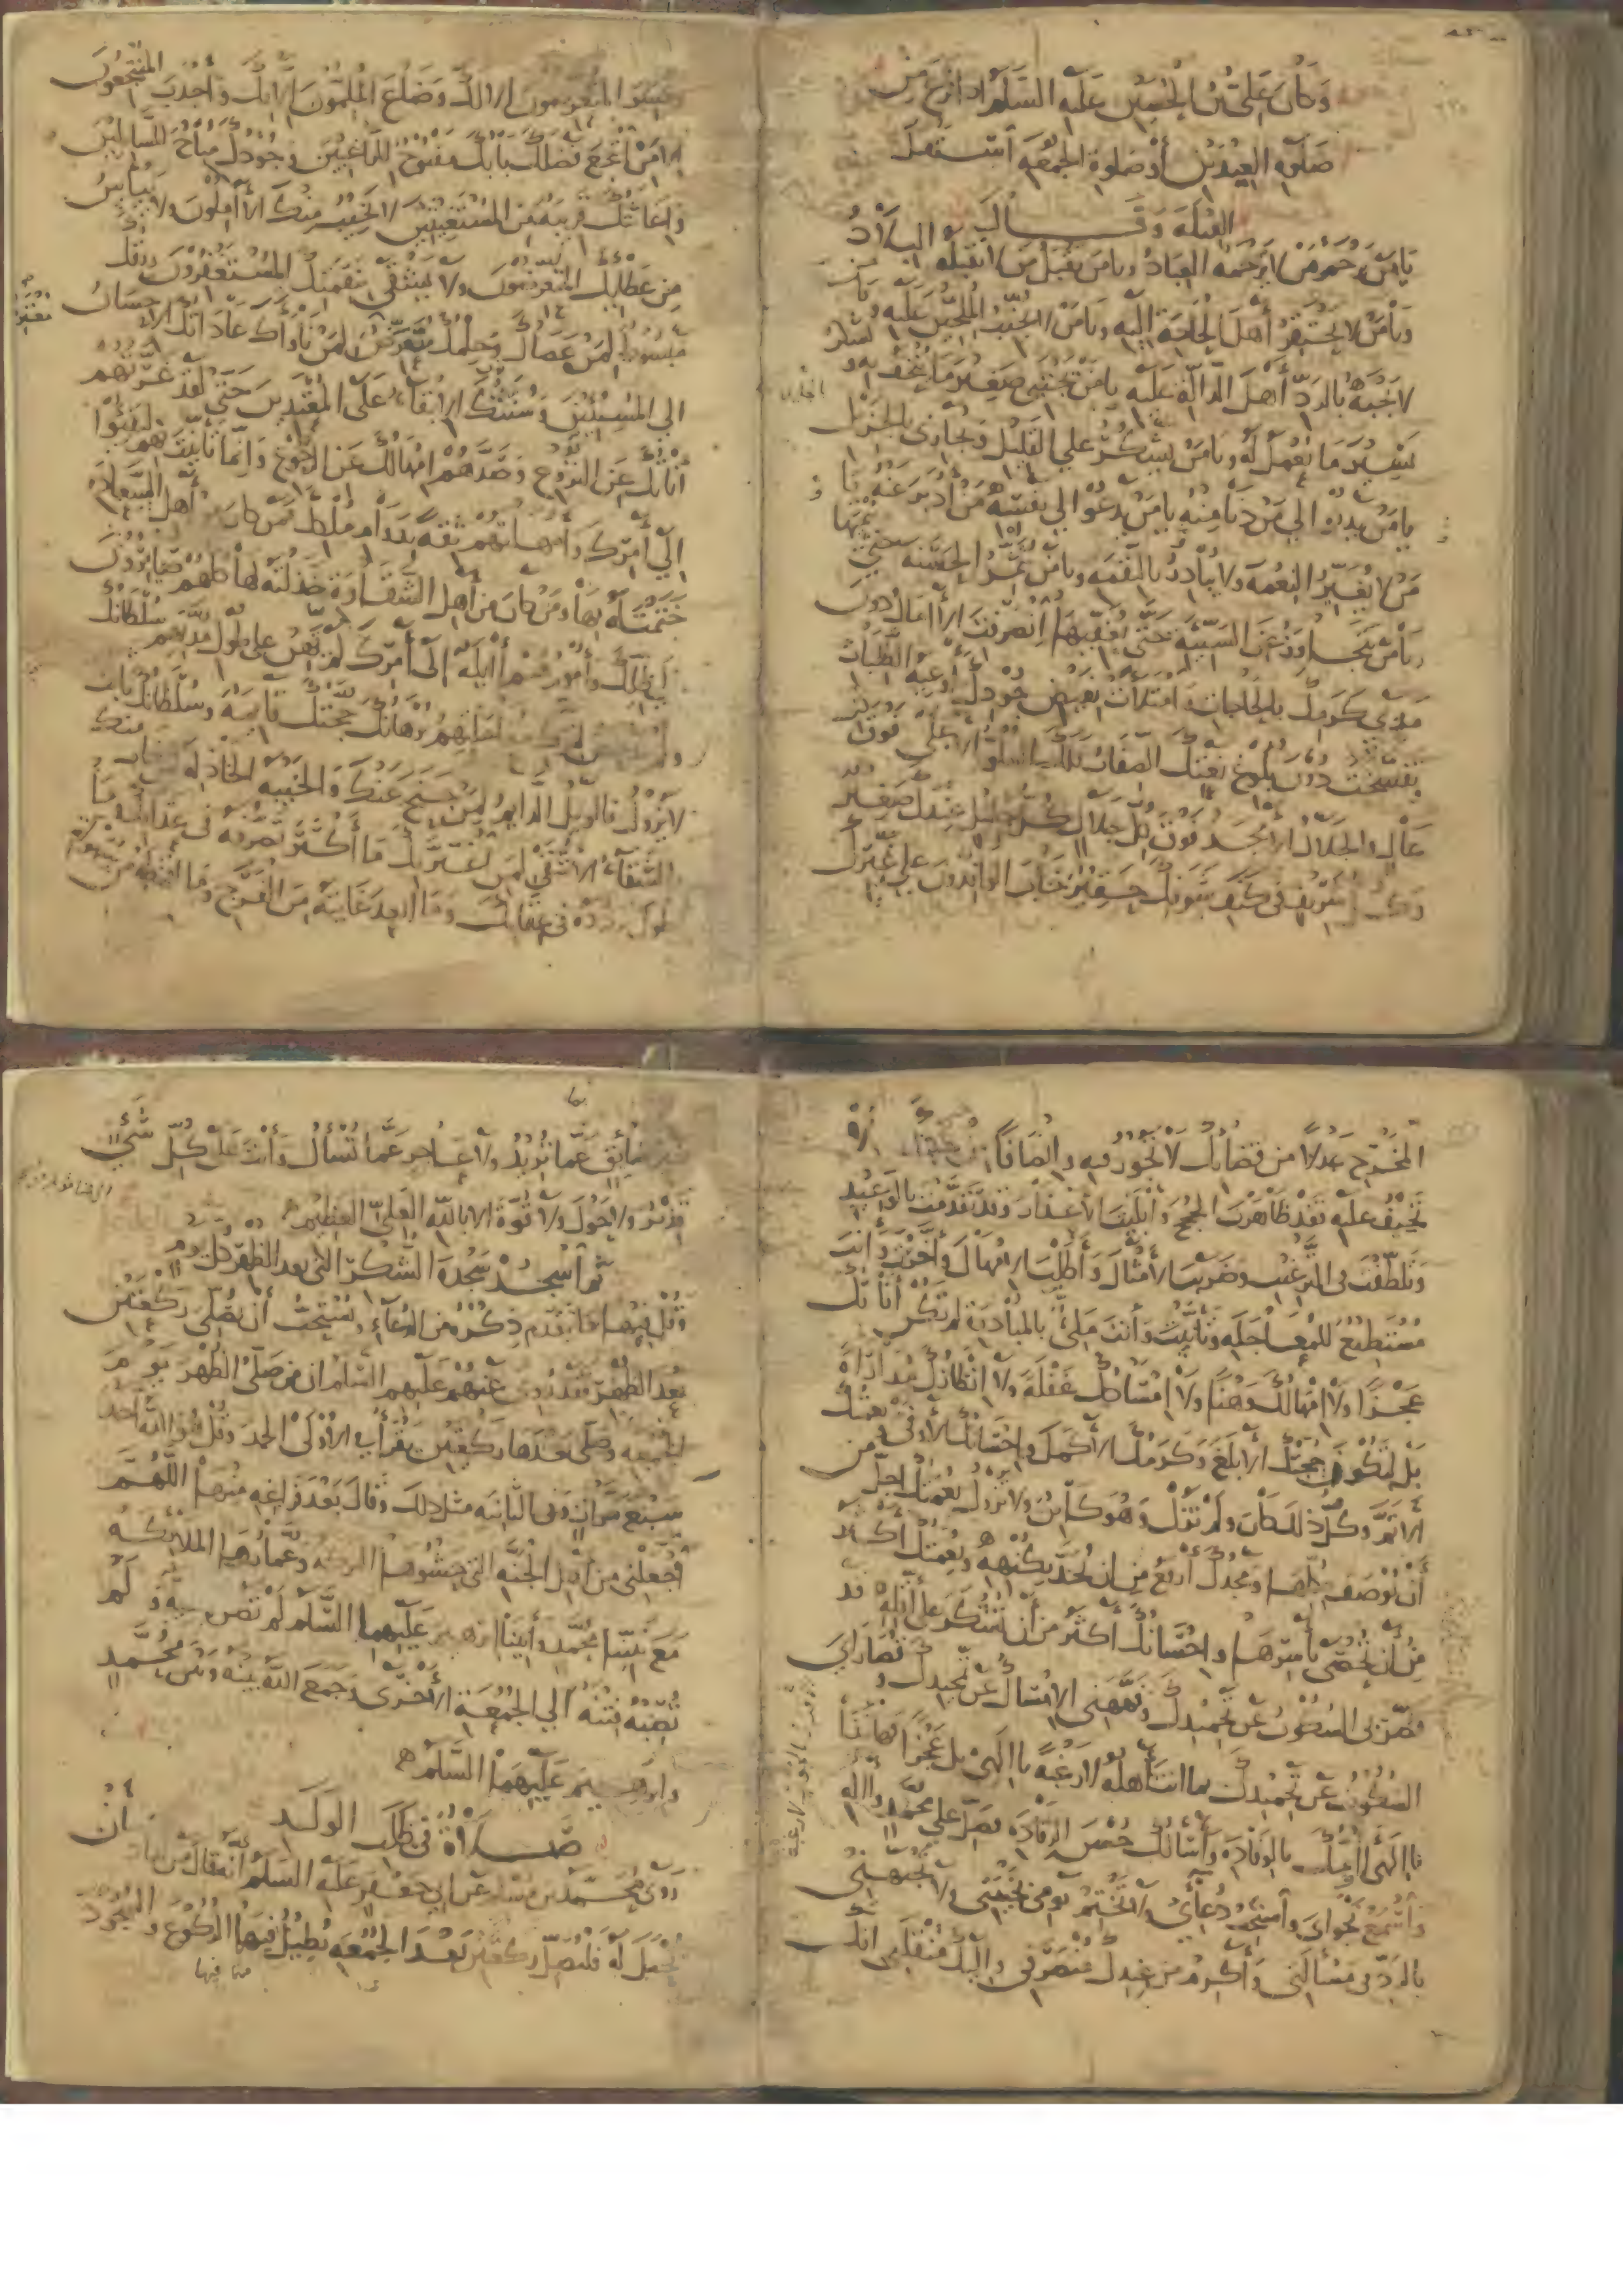 وكان علي بن الحسين عليه السلم اذا فرغ من
صلوة العيدين أو صلوة الجمعة استقبل
القبلة وقال
يا من يرحم من لا يرحمه العباد ويا من يقبل من لا تقبله البلاد
ويا من لا يحتقر أهل الحاجة إليه ويا من لا يخيب الملحين عليه ويا من
لا يجبه بالرد أهل الدالة عليه يا من يجتبي صغير ما يتحف به و
يسير ما يعمل له ويا من يشكر على القليل ويجازي بالجزيل
يا من يدنو إلى من دنا منه يا من يدعو إلى نفسه من أدبر عنه يا
من لا يغير النعمة ولا يبادر بالنقمة ويا من يثمر الحسنة حتى ينميها
ويا من يتجاوز عن السيئة حتى يعفيها انصرفت الآمال دون
مدى كرمك بالحاجات وامتلأت بفيض جودك أوعية الطلبات
وتفسخت دون بلوغ نعتك الصفات فلك العلو الأعلى فوق كل
عال والجلال الأمجد فوق كل جلال كل جليل عندك صغير
وكل شريف في كنف شرفك حقير خاب الوافدون على غيرك
وخسر المتعرضون إلا لك وضاع الملمون إلا بك وأجدب المنتجعون
إلا من انتجع فضلك بابك مفتوح للراغبين وجودك مباح للسائلين
وإغاثتك قريبة من المستغيثين لا يخيب منك الآملون ولا ييأس
من عطائك المتعرضون ولا يشقى بنقمتك المستغفرون رزقك
مبسوط لمن عصاك وحلمك متعرض لمن ناواك عادتك الإحسان
الي المسيئين وسنتك الإبقاء على المعتدين حتى لقد غرتهم
أناتك عن النزوع وصدهم إمهالك عن الرجوع وإنما تأنيت بهم ليفيئوا
الي أمرك وأمهلتهم ثقة بدوام ملكك فمن كان من أهل السعادة
ختمت له بها ومن كان من أهل الشقاوة خذلته لها كلهم صائرون
الي ظلك وأمورهم آئلة إلى أمرك لم يهن على طول مدتهم سلطانك
ولم يدحض لترك معاجلتهم برهانك حجتك قائمة وسلطانك ثابت
لا يزول فالويل الدائم لمن جنح عنك والخيبة الخاذلة لمن خاب منك
والشقاء الأشقى لمن اغتر بك ما أكثر تصرفه في عذابك وما
طول تردده في عقابك وما أبعد غايته من الفرج وما أقنطه من سهولة
المخرج عدلا من قضائك لا تجور فيه وإنصافا من حكمك لا
تحيف عليه فقد ظاهرت الحجج وأبليت الأعذار وقد تقدمت بالوعيد
وتلطفت في الترغيب وضربت الأمثال وأطلت الإمهال وأخرت وأنت
مستطيع للمعاجلة وتأنيت وأنت ملئ بالمبادرة لم تكن أناتك
عجزا ولا إمهالك وهنا ولا إمساكك غفلة ولا انتظارك مداراة
بل لتكون حجتك الأبلغ وكرمك الأكمل وإحسانك الأوفى ونعمتك
الأتم وكل ذلك كان ولم تزل وهو كائن ولا تزول نعمتك أجل من
أن توصف بكلها ومجدك أرفع من أن تحد بكنهه ونعمتك أكثر
من أن تحصى بأسرها وإحسانك أكثر من أن تشكر على أقله وقد
قصر بي السكوت عن تحميدك وفههني الإمساك عن تمجيدك وقصاراي
السكوت عن تحميدك بما أنت أهله لا رغبة يا إلهي بل عجزا فها أنا ذا
يا إلهي أؤمك بالوفادة وأسألك حسن الرفادة فصل على محمد وآله
واسمع نجواي واستجب دعائي ولا تختم يومي بخيبتي ولا تجبهني
بالرد في مسألتي وأكرم من عندك منصرفي وإليك منقلبي انك
غير ضائق عما تريد ولا عاجز عما تسأل وأنت على كل شيء
قدير ولا حول ولا قوة الا بالله العلي العظيم
ثم أسجد سجدة الشكر التي بعد الظهر كل يوم
وقل فيها ما تقدم ذكره من الدعاء ويستحب أن يصلي ركعتين
بعد الظهر فقد روي عنهم عليهم السلام ان من صلى الظهر يوم
الجمعة وصلى بعدها ركعتين يقرأ في الأولى الحمد وقل هو الله أحد
سبع مرات وفي الثانية مثل ذلك وقال بعد فراغه منها اللهم
اجعلني من أهل الجنة التي حشوها البركة وعمارها الملائكة
مع نبينا محمد وأبينا ابرهيم عليهما السلم لم تضره بلية ولم
تصبه فتنة الي الجمعة الأخرى وجمع الله بينه وبين محمد
وابرهيم عليهما السلم
صلاة في طلب الولد
روى محمد بن مسلم عن ابي جعفر عليه السلم أنه قال من أراد أن
يحبل له فليصل ركعتين بعد الجمعة يطيل فيهما الركوع والسجود